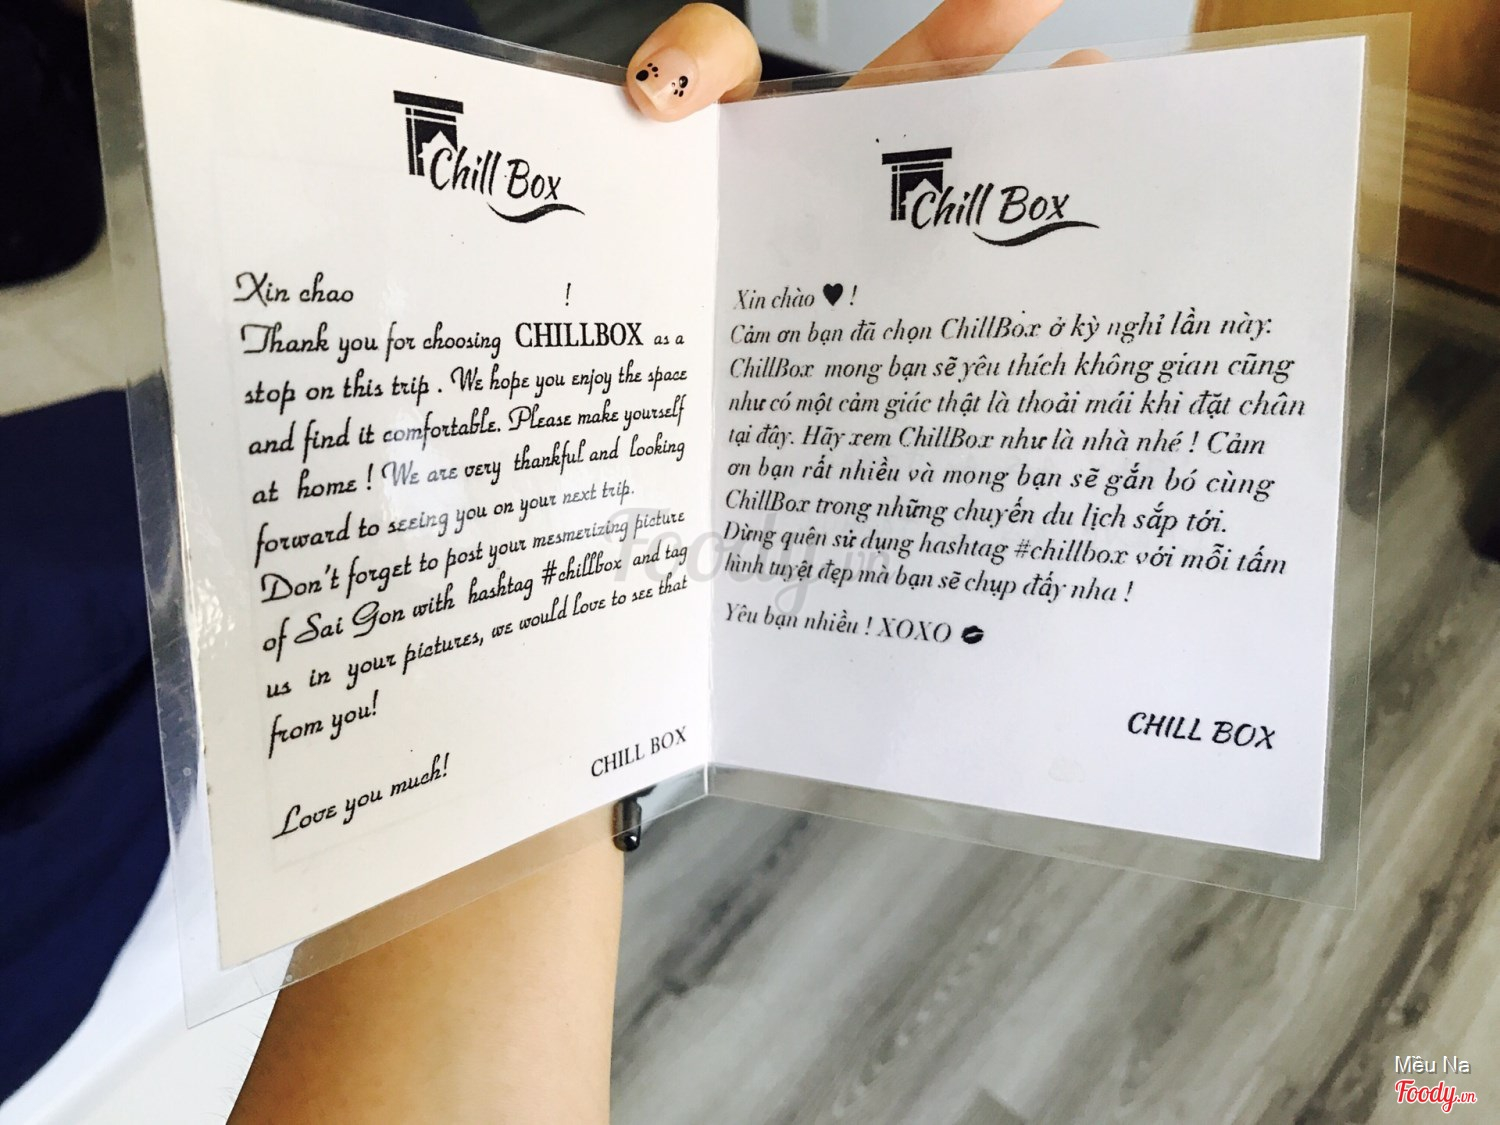 Chill Box
Xin chao !
Thank you for choosing CHILLBOX as a
stop on this trip . We hope you enjoy the space
and find it comfortable. Please make yourself
at home ! We are very thankful and looking
forward to seeing you on your next trip.
Don't forget to post your mesmerizing picture
of Sai Gon with hashtag #chillbox and tag
us in your pictures, we would love to see that
from you!
Love you much!
CHILL BOX
Chill Box
Xin chào ♥ !
Cảm ơn bạn đã chọn ChillBox ở kỳ nghỉ lần này.
ChillBox mong bạn sẽ yêu thích không gian cũng
như có một cảm giác thật là thoải mái khi đặt chân
tại đây. Hãy xem ChillBox như là nhà nhé ! Cảm
ơn bạn rất nhiều và mong bạn sẽ gắn bó cùng
ChillBox trong những chuyến du lịch sắp tới.
Đừng quên sử dụng hashtag #chillbox với mỗi tấm
hình tuyệt đẹp mà bạn sẽ chụp đấy nha !
Yêu bạn nhiều ! XOXO 💋
CHILL BOX
Foody.vn
Mều Na
Foody.vn